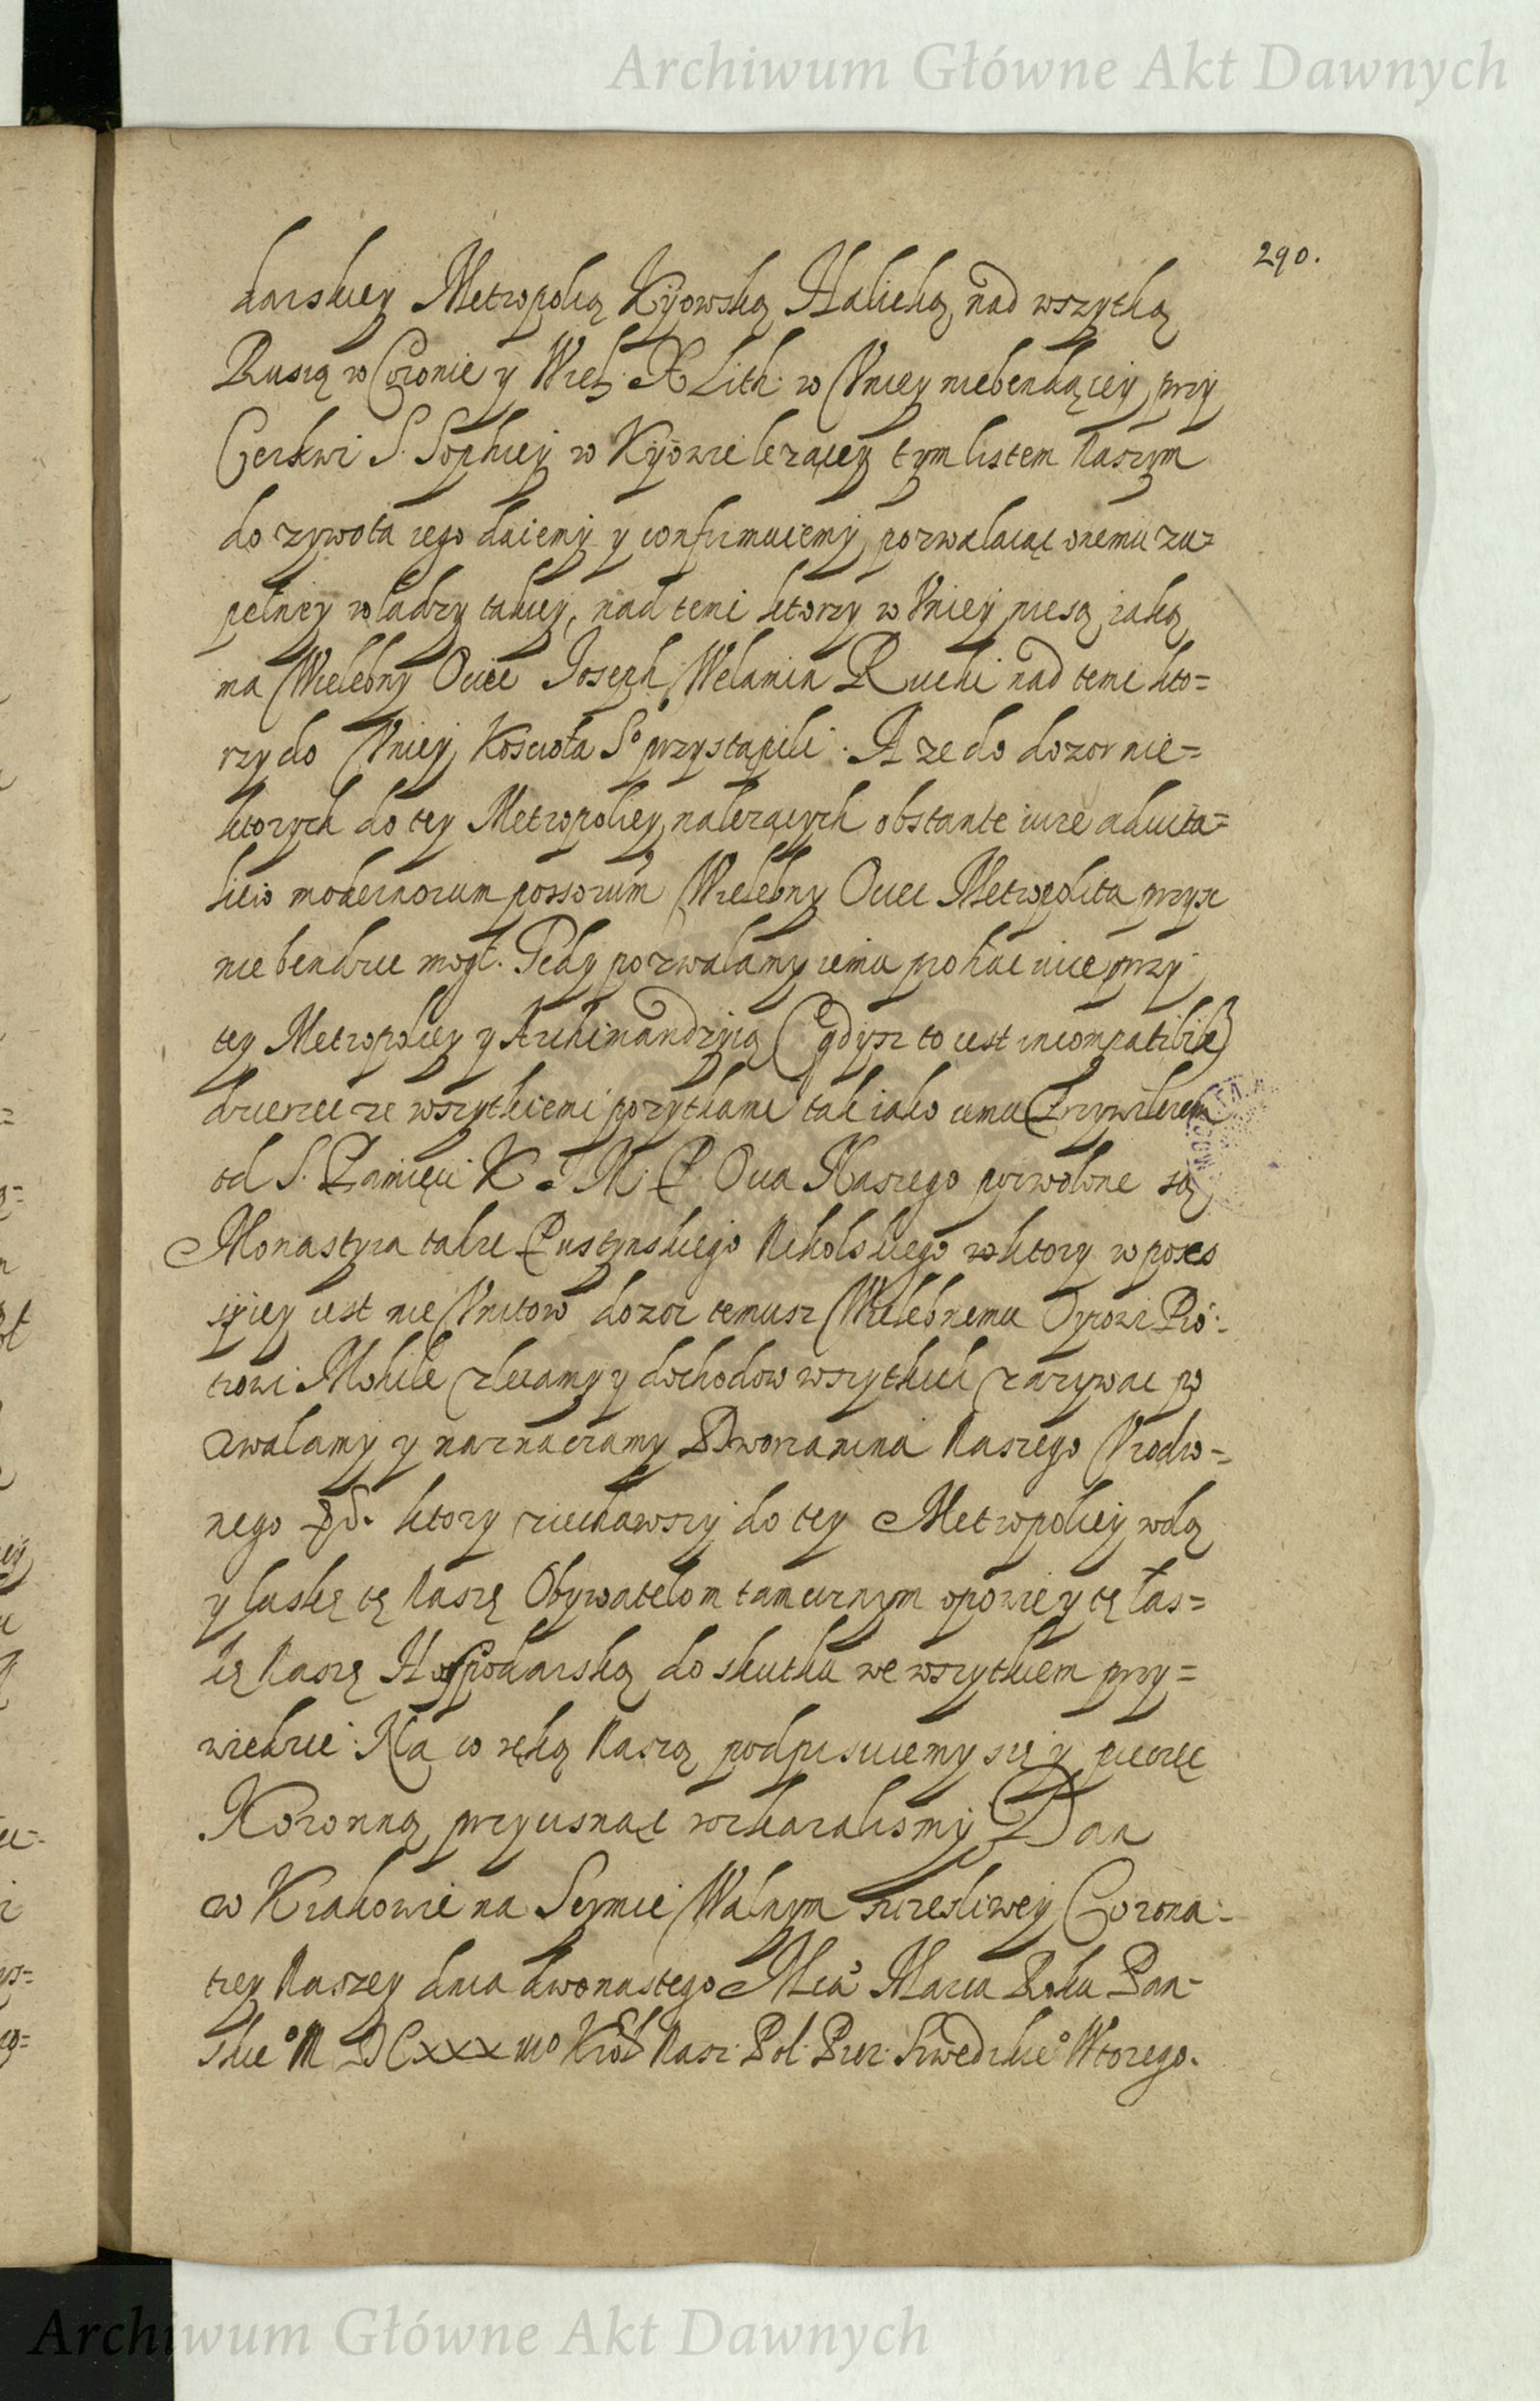 Archiwum Główne Akt Dawnych
290.
darskiey Metropolią Kijowską Halicką, nad wszytką
Rusią w Coronie y Wiel: X Lith: w Vniey niebendąciey przy
Cerkwi S. Sophiey w Kijowie lezacey tym listem Naszym
do zywota iego daiemy y confirmuiemy pozwalaiąc onemu zu=
pełney władzy takiey, nad temi ktorzy w Vniey niesą iaką
ma Wielebny Ociec Joseph Welamin Rucki nad temi kto=
rzy do Vniey Kościoła S° przystąpili. A ze do dozor nie=
ktorych do tey Metropoliey nalezących obstante iure aduita=
licio modernorum possorum Wielebny Ociec Metropolita przysc
nie bendzie mogł. Tedy pozwalamy iemu pokac nie przy
tey Metropoliey y Archimandryią (gdysz to iest incompatibile)
dzierzec ze wszytkiemi pozytkami tak iako iemu Przywileiem
od S. Pamięci K. J. M. P. Oica Naszego pozwolone są
Monastyra takze Pustynskiego Nikolskiego w ktory w poses
syiey iest nie Vnitow dozor temusz Wielebnemu Oycowi Pio=
trowi Mohile zlecamy y dochodow wszytkich zazywac po
zwalamy y naznaczamy Dworzanina Naszego Vrodzo=
nego ktory ziechawszy do tey Metropoliey wolą
y łaskę tę Naszę Obywatelom tamecznym opowie y tę łas=
kę Naszę Hospodarską do skutku we wszytkiem przy=
wiedzie. Na co ręką Naszą podpisuiemy się y pieczęc
Koronną przycisnąc rozkazalismy Dan
w Krakowie na Seymie Walnym szczesliwey Corona=
tiey Naszey dnia dwonastego Mca Marca Roku Pan=
skie° M DCxxxiii° Krol Nasz: Pol: Prze: Szwedzkie° Wtorego.
Archiwum Główne Akt Dawnych